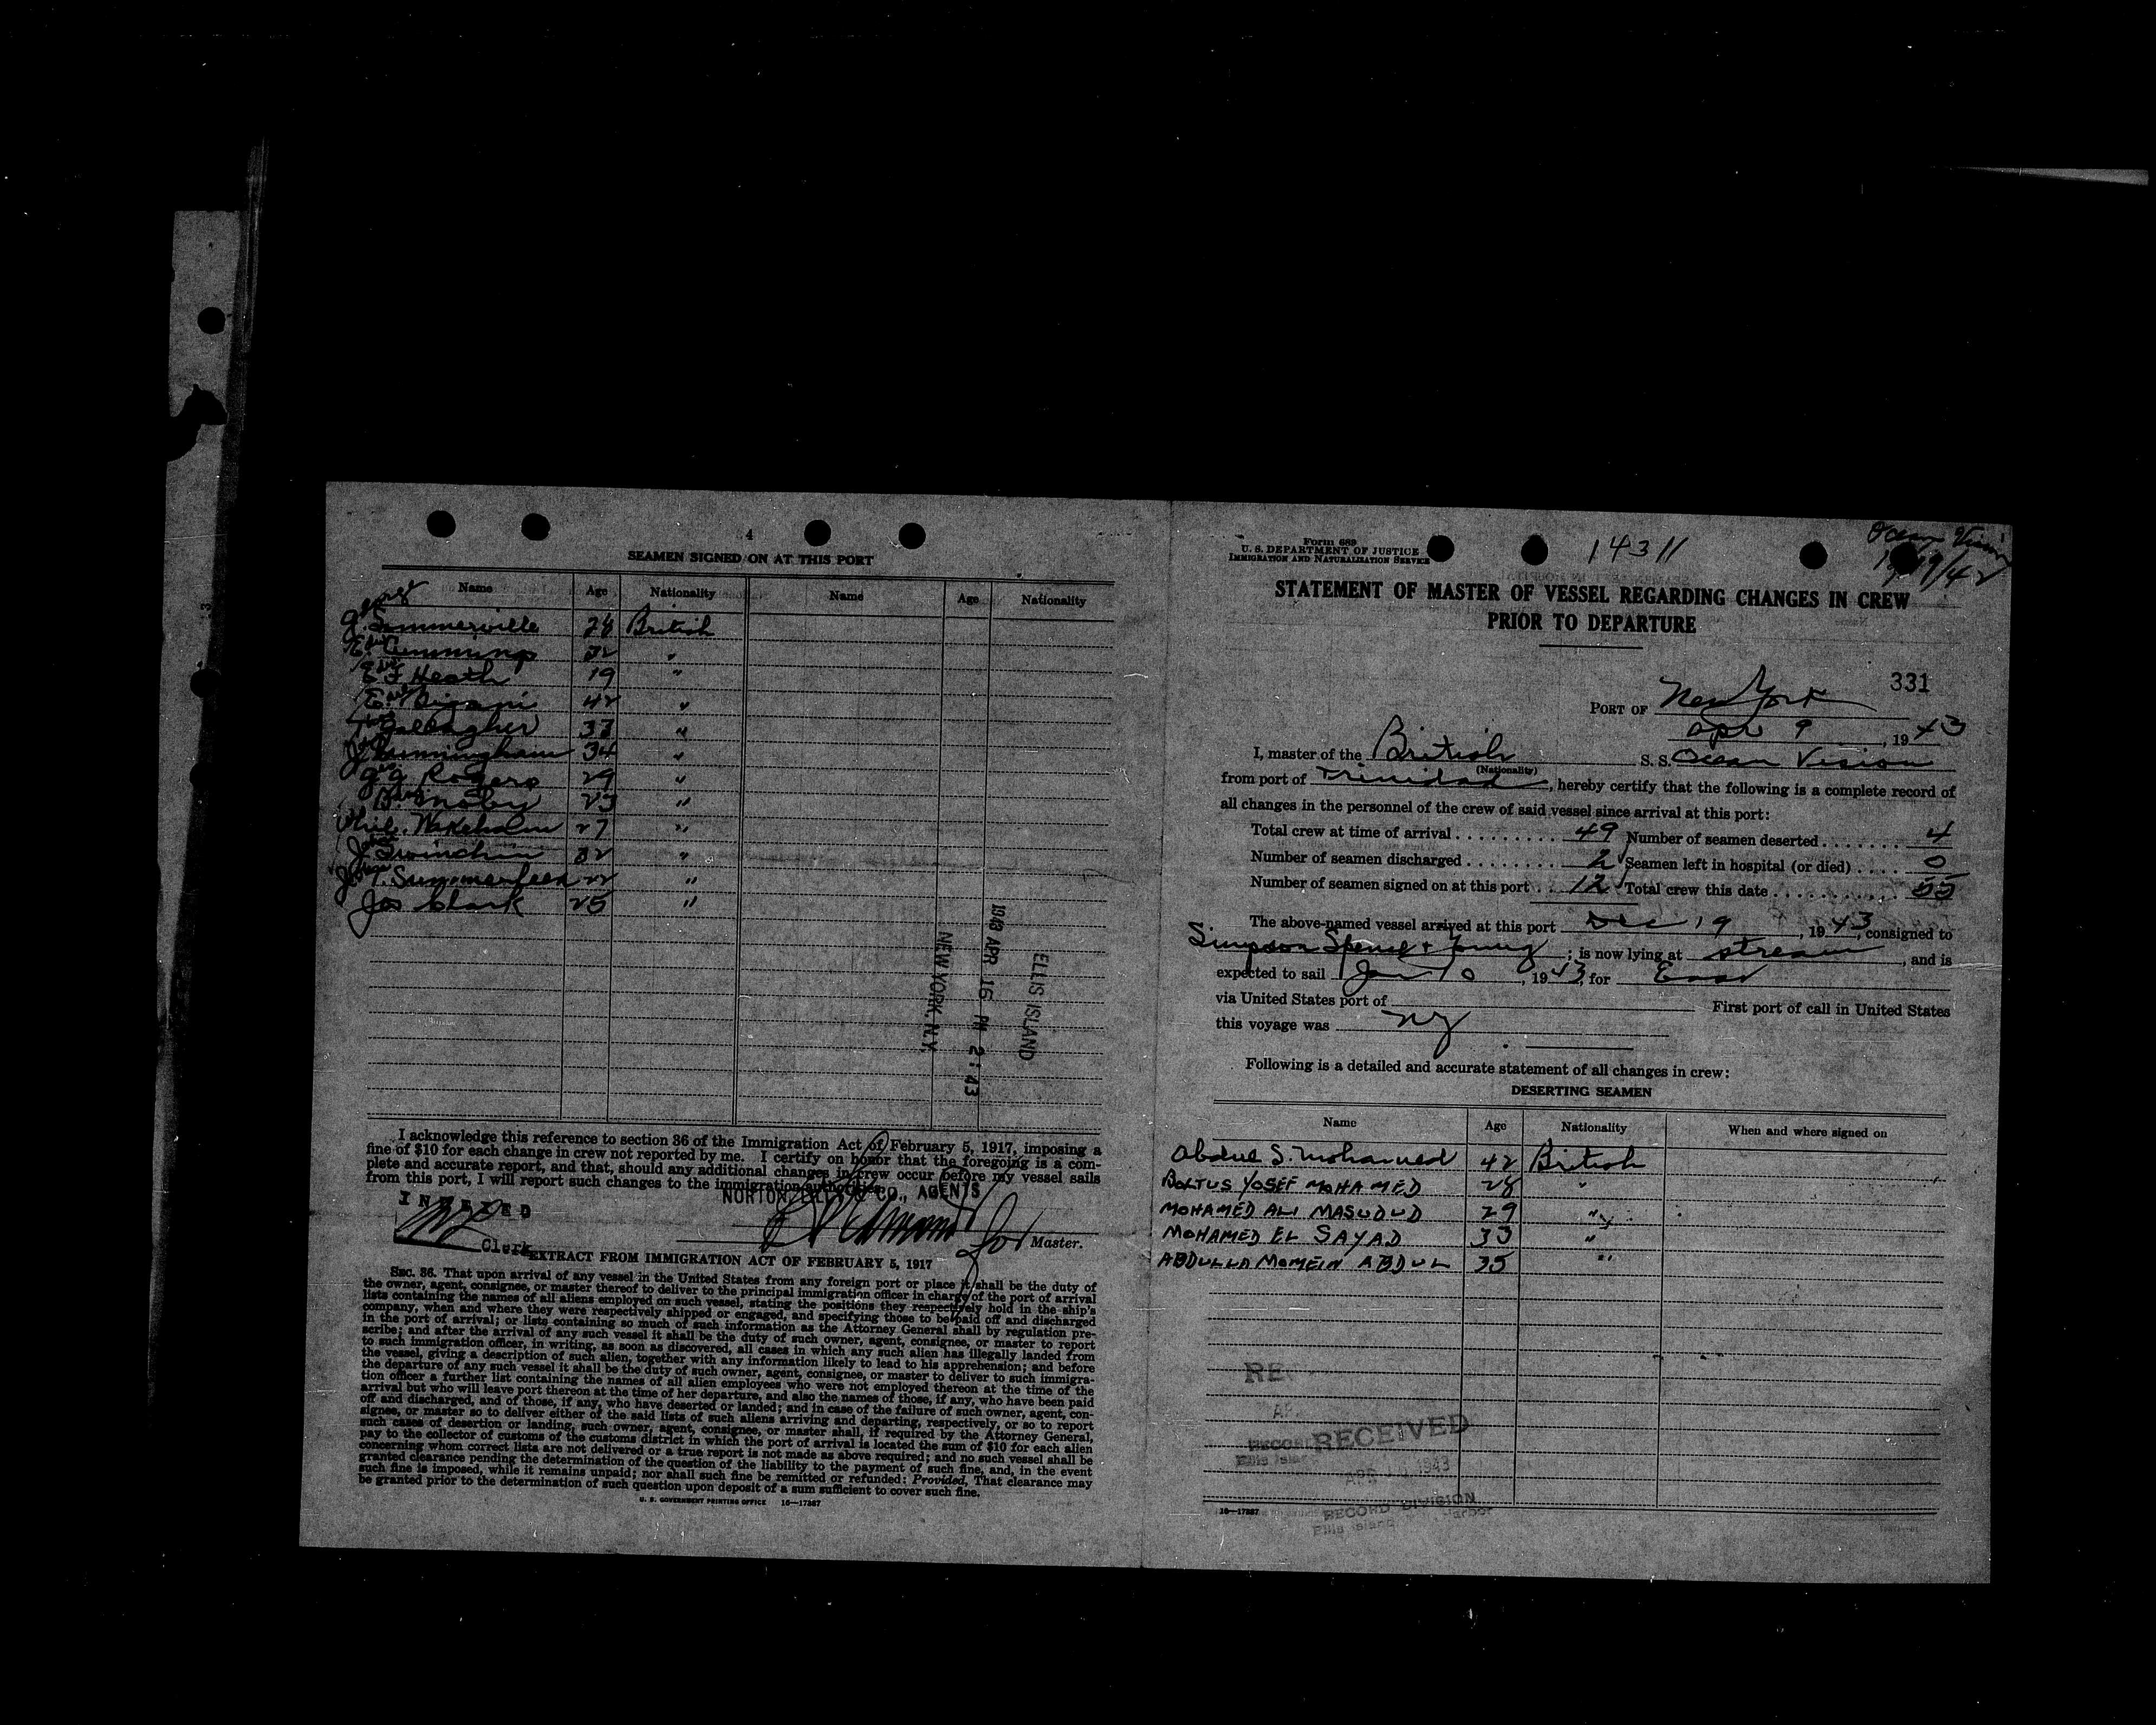 4
SEAMEN SIGNED ON AT THIS PORT
Name Age Nationality Name Age Nationality
G. Sommerville 28 British
Cummings 32 "
E F Heath 19 "
42 "
Gallagher 33 "
Cunningham 34 "
Rogers 29 "
23 "
Phil. Wakeholm 27 "
J Swinchin 32 "
T. Summerfeld 22 "
Jas Clark 25 "
ELLIS ISLAND
1943 APR 16 PM 2:43
NEW YORK, N.Y.
I acknowledge this reference to section 36 of the Immigration Act of February 5, 1917, imposing a
fine of $10 for each change in crew not reported by me. I certify on honor that the foregoing is a com-
plete and accurate report, and that, should any additional changes in crew occur before my vessel sails
from this port, I will report such changes to the immigration authorities.
NORTON, LILLY & CO., AGENTS
INDEXED
for Master.
Clerk
EXTRACT FROM IMMIGRATION ACT OF FEBRUARY 5, 1917
SEC. 36. That upon arrival of any vessel in the United States from any foreign port or place it shall be the duty of
the owner, agent, consignee, or master thereof to deliver to the principal immigration officer in charge of the port of arrival
lists containing the names of all aliens employed on such vessel, stating the positions they respectively hold in the ship's
company, when and where they were respectively shipped or engaged, and specifying those to be paid off and discharged
in the port of arrival; or lists containing so much of such information as the Attorney General shall by regulation pre-
scribe; and after the arrival of any such vessel it shall be the duty of such owner, agent, consignee, or master to report
to such immigration officer, in writing, as soon as discovered, all cases in which any such alien has illegally landed from
the vessel, giving a description of such alien, together with any information likely to lead to his apprehension; and before
the departure of any such vessel it shall be the duty of such owner, agent, consignee, or master to deliver to such immigra-
tion officer a further list containing the names of all alien employees who were not employed thereon at the time of the
arrival but who will leave port thereon at the time of her departure, and also the names of those, if any, who have been paid
off and discharged, and of those, if any, who have deserted or landed; and in case of the failure of such owner, agent, con-
signee, or master so to deliver either of the said lists of such aliens arriving and departing, respectively, or so to report
such cases of desertion or landing, such owner, agent, consignee, or master shall, if required by the Attorney General,
pay to the collector of customs of the customs district in which the port of arrival is located the sum of $10 for each alien
concerning whom correct lists are not delivered or a true report is not made as above required; and no such vessel shall be
granted clearance pending the determination of the question of the liability to the payment of such fine, and, in the event
such fine is imposed, while it remains unpaid; nor shall such fine be remitted or refunded: Provided, That clearance may
be granted prior to the determination of such question upon deposit of a sum sufficient to cover such fine.
U. S. GOVERNMENT PRINTING OFFICE 16—17387
Form 689
U. S. DEPARTMENT OF JUSTICE
IMMIGRATION AND NATURALIZATION SERVICE
14311
Ocean Vision
19/42
STATEMENT OF MASTER OF VESSEL REGARDING CHANGES IN CREW
PRIOR TO DEPARTURE
331
PORT OF New York
Apr 9, 1943
I, master of the British S. S. Ocean Vision
(Nationality)
from port of Trinidad, hereby certify that the following is a complete record of
all changes in the personnel of the crew of said vessel since arrival at this port:
Total crew at time of arrival 49 Number of seamen deserted 4
Number of seamen discharged 2 Seamen left in hospital (or died) 0
Number of seamen signed on at this port 12 Total crew this date 55
The above-named vessel arrived at this port Dec 19, 1943, consigned to
Simpson Spence & Young; is now lying at stream, and is
expected to sail Jan 10, 1943, for East
via United States port of First port of call in United States
this voyage was NY
Following is a detailed and accurate statement of all changes in crew:
DESERTING SEAMEN
Name Age Nationality When and where signed on
Abdul S. Mohamed 42 British
BOLTUS YOSEF MOHAMED 28 "
MOHAMED ALI MASUDUD 29 "
MOHAMED EL SAYAD 33 "
ABDULLA MOMEIN ABDUL 35 "
RE
RECEIVED
1943
RECORD DIVISION
Ellis Island Harbor
16—17387